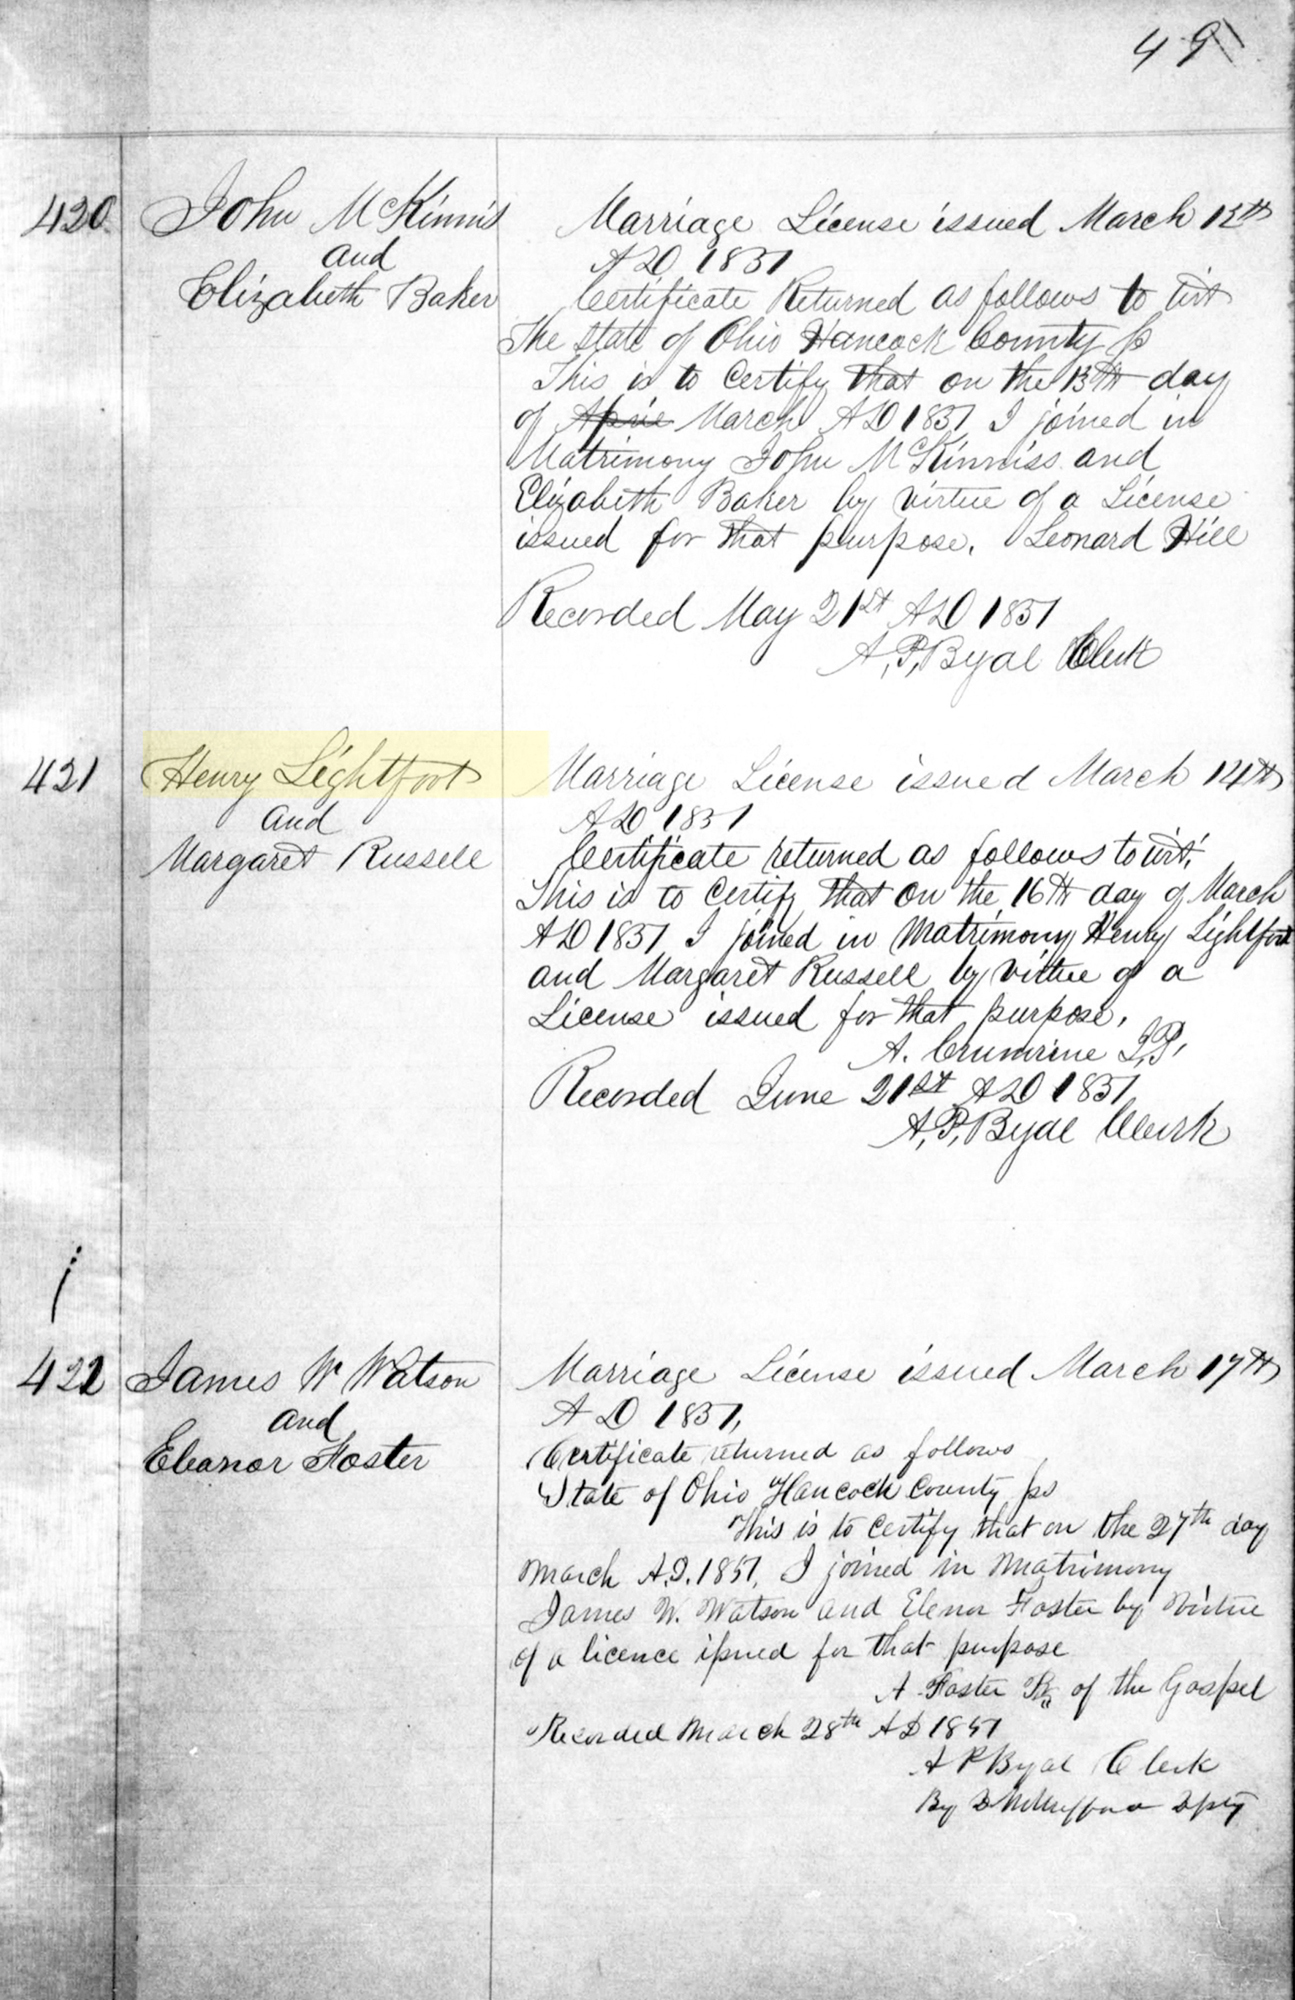 49
420
John McKinnis
and
Elizabeth Baker
Marriage License issued March 12th
AD 1851
Certificate Returned as follows to wit
The State of Ohio Hancock County ss
This is to Certify that on the 13th day
of April March AD 1851 I joined in
Matrimony John McKinniss and
Elizabeth Baker by virtue of a License
issued for that purpose. Leonard Hill
Recorded May 21st AD 1851
A,P, Byal Clerk
421
Henry Lightfoot
and
Margaret Russell
Marriage License issued March 14th
AD 1851
Certificate returned as follows to wit,
This is to Certify that on the 16th day of March
AD 1851 I joined in Matrimony Henry Lightfoot
and Margaret Russell by virtue of a
License issued for that purpose,
A. Crumrine J,P,
Recorded June 21st AD 1851
A,P, Byal Clerk
422
James W Watson
and
Eleanor Foster
Marriage License issued March 17th
AD 1851,
Certificate returned as follows
State of Ohio Hancock County ss
This is to Certify that on the 27th day
March A.D. 1851, I joined in Matrimony
James W. Watson and Elenor Foster by Virtue
of a licence issued for that purpose
A Foster of the Gospel
Recorded March 28th AD 1851
A P Byal Clerk
By Dpty